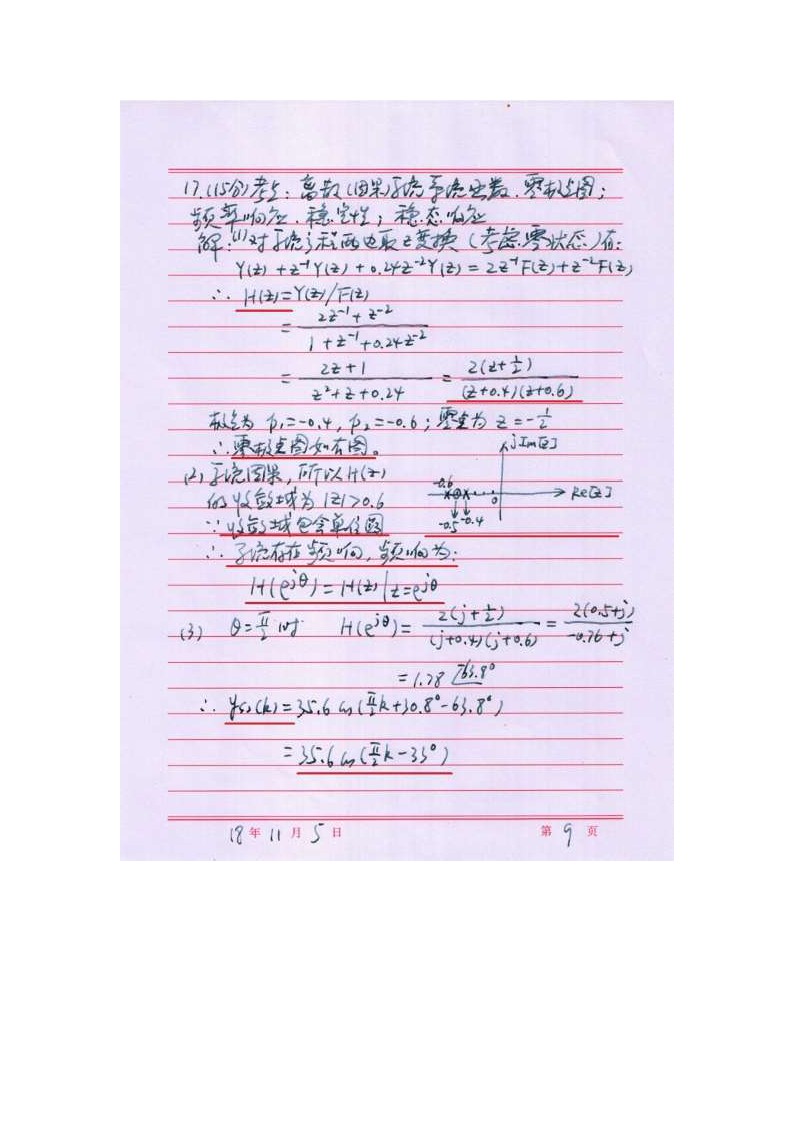 17.(15分)考点：离散(因果)系统系统函数、零极点图；
频率响应、稳定性；稳态响应
解：(1)对系统方程两边取z变换(考虑零状态)有：
Y(z)+z⁻¹Y(z)+0.24z⁻²Y(z)=2z⁻¹F(z)+z⁻²F(z)
∴ H(z)=Y(z)/F(z)
= (2z⁻¹+z⁻²)/(1+z⁻¹+0.24z⁻²)
= (2z+1)/(z²+z+0.24) = 2(z+½)/((z+0.4)(z+0.6))
极点为 p₁=-0.4, p₂=-0.6；零点为 z=-½
∴零极点图如右图。
jIm[z]
-0.6
0
Re[z]
-0.5 -0.4
(2)系统因果，所以H(z)
的收敛域为 |z|>0.6
∵收敛域包含单位圆
∴系统存在频响，频响为：
H(e^{jθ})=H(z)|z=e^{jθ}
(3) θ=π/2时 H(e^{jθ})= 2(j+½)/((j+0.4)(j+0.6)) = 2(0.5+j)/(-0.76+j)
=1.78∠-63.8°
∴ yss(k)=35.6cos(π/2k+30.8°-63.8°)
=35.6cos(π/2k-33°)
18年11月5日 第9页